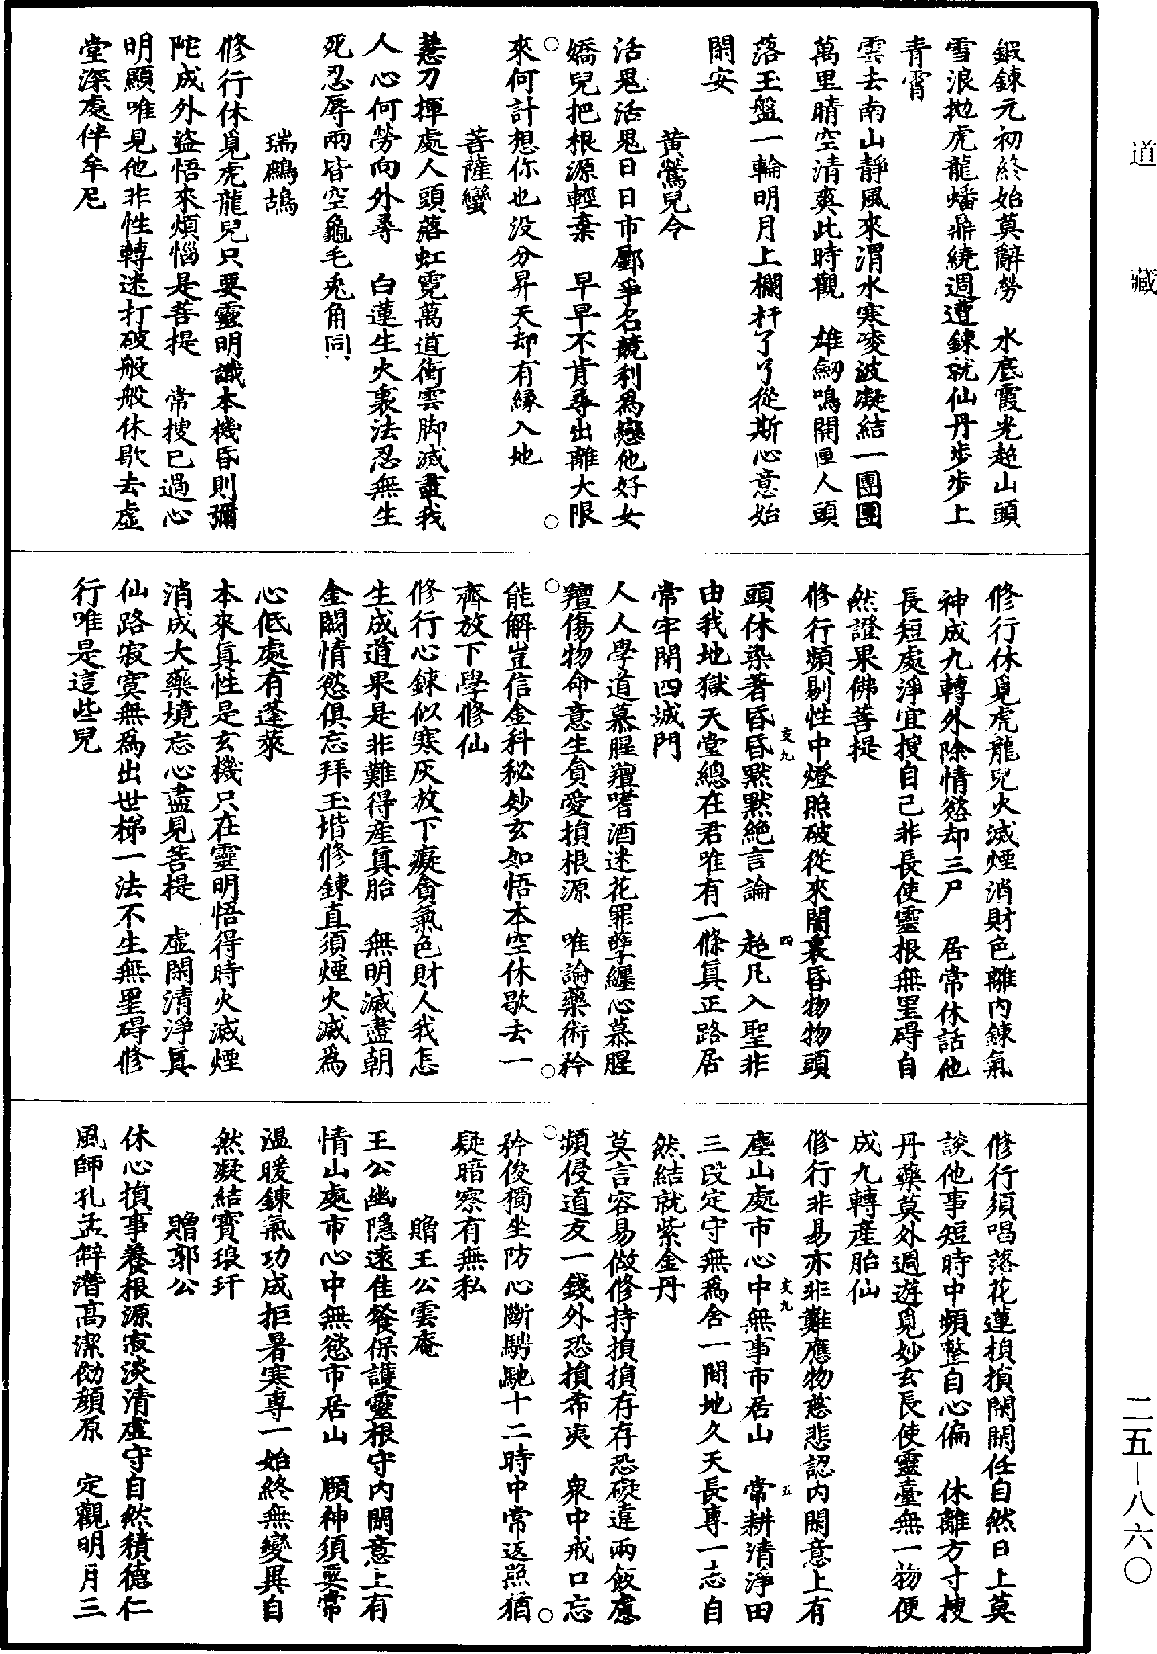 道藏
鍛鍊元初終始莫辭勞　水底霞光起山頭
雪浪拋虎龍蟠鼎繞週遭鍊就仙丹步步上
青霄
雲去南山靜風來渭水寒凌波凝結一團團
萬里晴空清爽此時觀　雄劒鳴開匣人頭
落玉盤一輪明月上欄杆了了從斯心意始
閑安
黃鶯兒令
活鬼活鬼日日市鄽爭名競利爲戀他好女
嬌兒把根源輕棄　早早不肯尋出離大限
來何計想你也没分昇天却有緣入地
菩薩蠻
慧刀揮處人頭落虹霓萬道衝雲脚滅盡我
人心何勞向外尋　白蓮生火裏法忍無生
死忍辱兩皆空龜毛兎角同
瑞鷓鴣
修行休覓虎龍兒只要靈明識本機昏則彌
陀成外盜悟來煩惱是菩提　常搜已過心
明顯唯見他非性轉迷打破般般休歇去虛
堂深處伴牟尼
修行休覓虎龍兒火滅煙消財色離內鍊氣
神成九轉外除情慾却三尸　居常休話他
長短處淨宜搜自己非長使靈根無罣碍自
然證果佛菩提
修行頻剔性中燈照破從來闇裏昏物物頭
頭休染著昏昏默默絶言論　超凡入聖非
由我地獄天堂總在君唯有一條真正路居
常牢閉四誠門
人人學道慕腥羶嗜酒迷花罪孽纏心慕腥
羶傷物命意生貪愛損根源　唯論藥術矜
能解豈信金科秘妙玄如悟本空休歇去一
齊放下學修仙
修行心鍊似寒灰放下癡貪氣色財人我怎
生成道果是非難得産真胎　無明滅盡朝
金闕情慾俱忘拜玉堦修鍊直須煙火滅爲
心低處有蓬萊
本來真性是玄機只在靈明悟得時火滅煙
消成大藥境忘心盡見菩提　虛閑清淨真
仙路寂寞無爲出世梯一法不生無罣碍修
行唯是這些兒
修行須唱落花蓮損損閑閑任自然日上莫
談他事短時中頻整自心偏　休離方寸搜
丹藥莫外週遊覓妙玄長使靈臺無一物便
成九轉產胎仙
修行非易亦非難應物慈悲認內閑意上有
塵山處市心中無事市居山　常耕清淨田
三段定守無爲舍一間地久天長專一志自
然結就紫金丹
莫言容易做修持損損存存恐礙違兩飲慮
頻侵道友一錢外恐損希夷　衆中戒口忘
矜俊獨坐防心斷騁馳十二時中常返照猶
疑暗察有無私
贈王公雲庵
王公幽隱速佳餐保護靈根守內閑意上有
情山處市心中無慾市居山　頤神須要常
溫暖鍊氣功成拒暑寒專一始終無變異自
然凝結寶琅玕
贈郭公
休心損事養根源寂淡清虛守自然積德仁
風師孔孟解潛高潔効顔原　定觀明月三
支九
四
支九
五
二五—八六〇